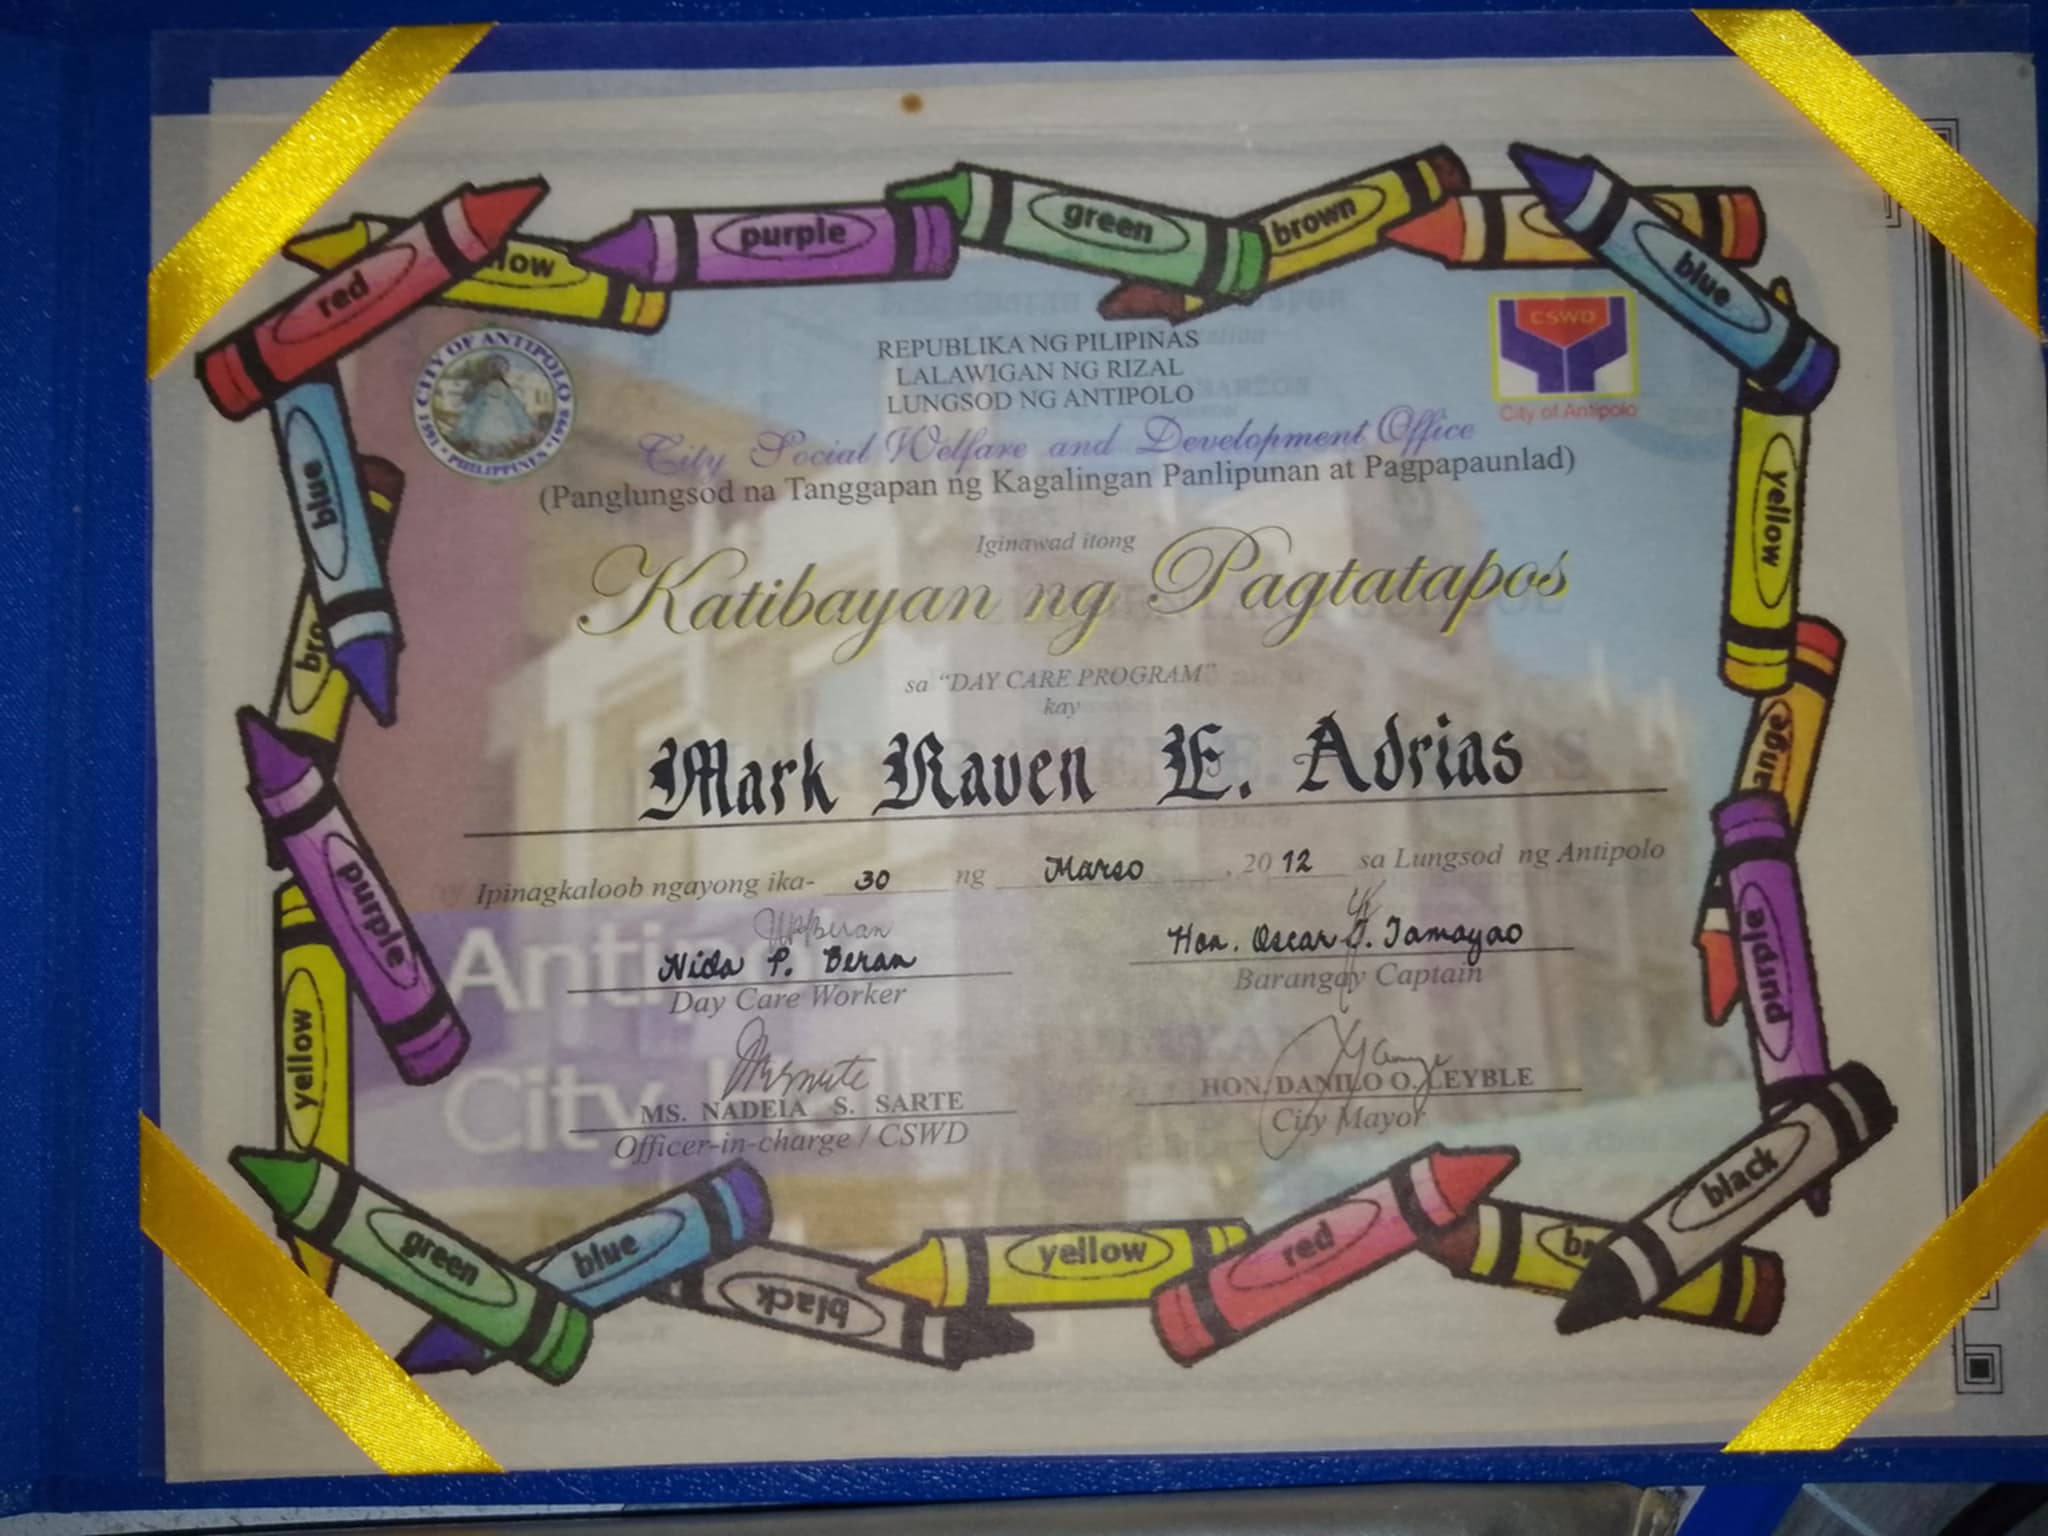 red
yellow
purple
green
brown
blue
CITY OF ANTIPOLO
1591 · PHILIPPINES · 1998
CSWD
City of Antipolo
REPUBLIKA NG PILIPINAS
LALAWIGAN NG RIZAL
LUNGSOD NG ANTIPOLO
City Social Welfare and Development Office
(Panglungsod na Tanggapan ng Kagalingan Panlipunan at Pagpapaunlad)
Iginawad itong
Katibayan ng Pagtatapos
sa "DAY CARE PROGRAM"
kay
Mark Raven E. Adrias
Ipinagkaloob ngayong ika- 30 ng Marso, 2012 sa Lungsod ng Antipolo
Nida P. Beran
Day Care Worker
Hon. Oscar J. Tamayao
Barangay Captain
MS. NADEIA S. SARTE
Officer-in-charge / CSWD
HON. DANILO O. LEYBLE
City Mayor
Anti
City Hall
blue
bro
purple
yellow
yellow
ange
purple
green
blue
black
yellow
red
br
black